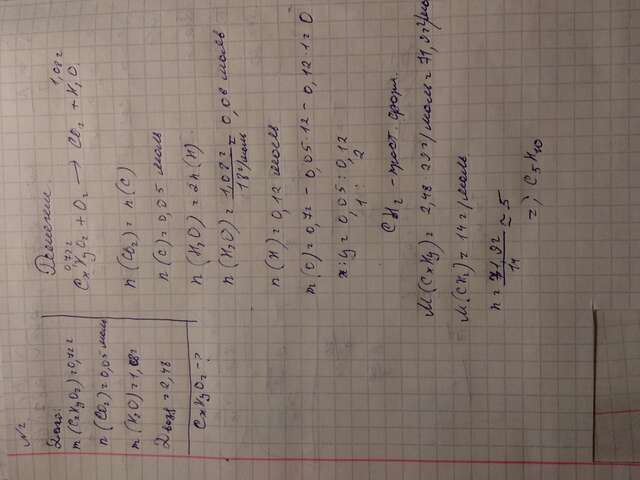 №2
Дано:
m(CxHyOz)=0,72г
n(CO₂)=0,05 моль
m(H₂O)=1,08г
Dвозд=2,48
CxHyOz-?
Решение:
0,72г 1,08г
CxHyOz + O₂ → CO₂ + H₂O
n(CO₂) = n(C)
n(C) = 0,05 моль
n(H₂O) = 2n(H)
n(H₂O) = 1,08г / 18г/моль = 0,06 моль
n(H) = 0,12 моль
m(O) = 0,72 - 0,05·12 - 0,12·1 = 0
x:y = 0,05:0,12
1 : 2
CH₂ - прост. форм.
M(CxHy) = 2,48·29г/моль = 71,9г/моль
M(CH₂) = 14г/моль
n = 71,92 / 14 ≈ 5
=> C₅H₁₀